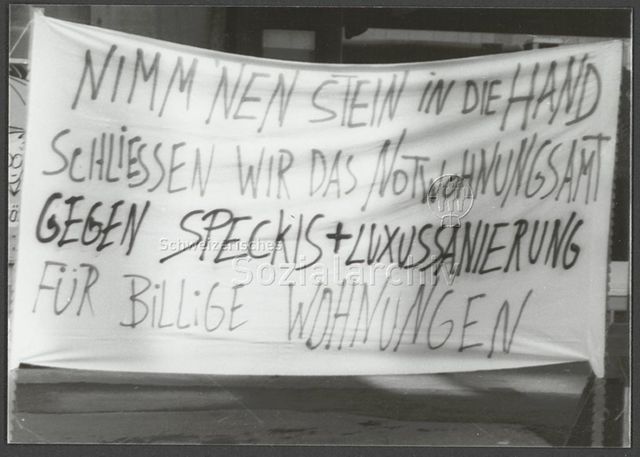 NIMM 'NEN STEIN IN DIE HAND
SCHLIESSEN WIR DAS NOTWOHNUNGSAMT
GEGEN SPECKIS + LUXUSSANIERUNG
FÜR BILLIGE WOHNUNGEN
Schweizerisches
Sozialarchiv